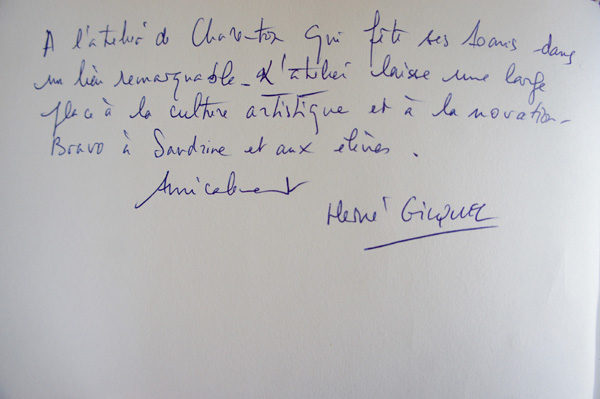 A l'atelier de Charenton qui fête ses 10 ans dans
un lieu remarquable - L'atelier laisse une large
place à la culture artistique et à la novation -
Bravo à Sandrine et aux élèves.
Amicalement
Hervé GICQUEL